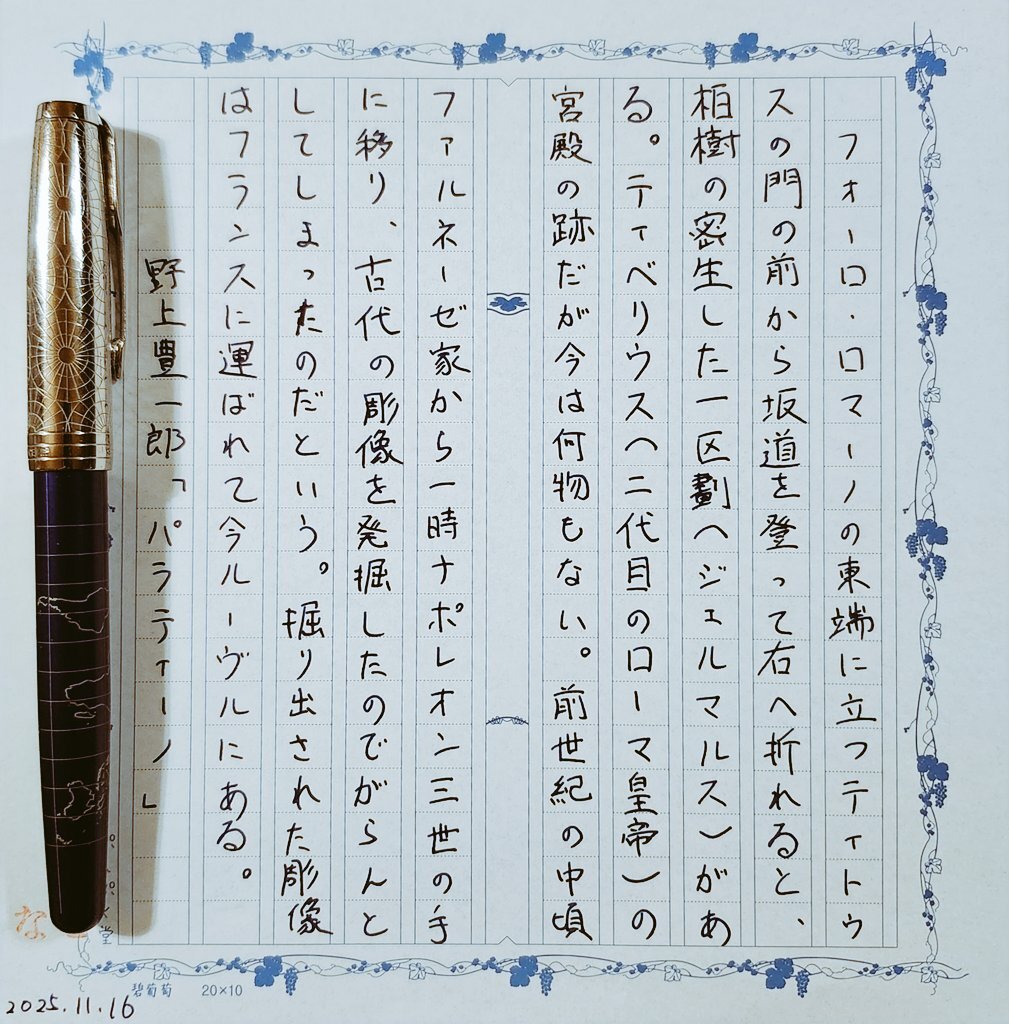 フォーロ・ロマーノの東端に立つティトウ
スの門の前から坂道を登って右へ折れると、
柏樹の密生した一区劃(ジェルマルス)があ
る。ティベリウス(二代目のローマ皇帝)の
宮殿の跡だが今は何物もない。前世紀の中頃
ファルネーゼ家から一時ナポレオン三世の手
に移り、古代の彫像を発掘したのでがらんと
してしまったのだという。掘り出された彫像
はフランスに運ばれて今ルーヴルにある。
野上豊一郎「パラティーノ」
碧葡萄 20×10
2025.11.16